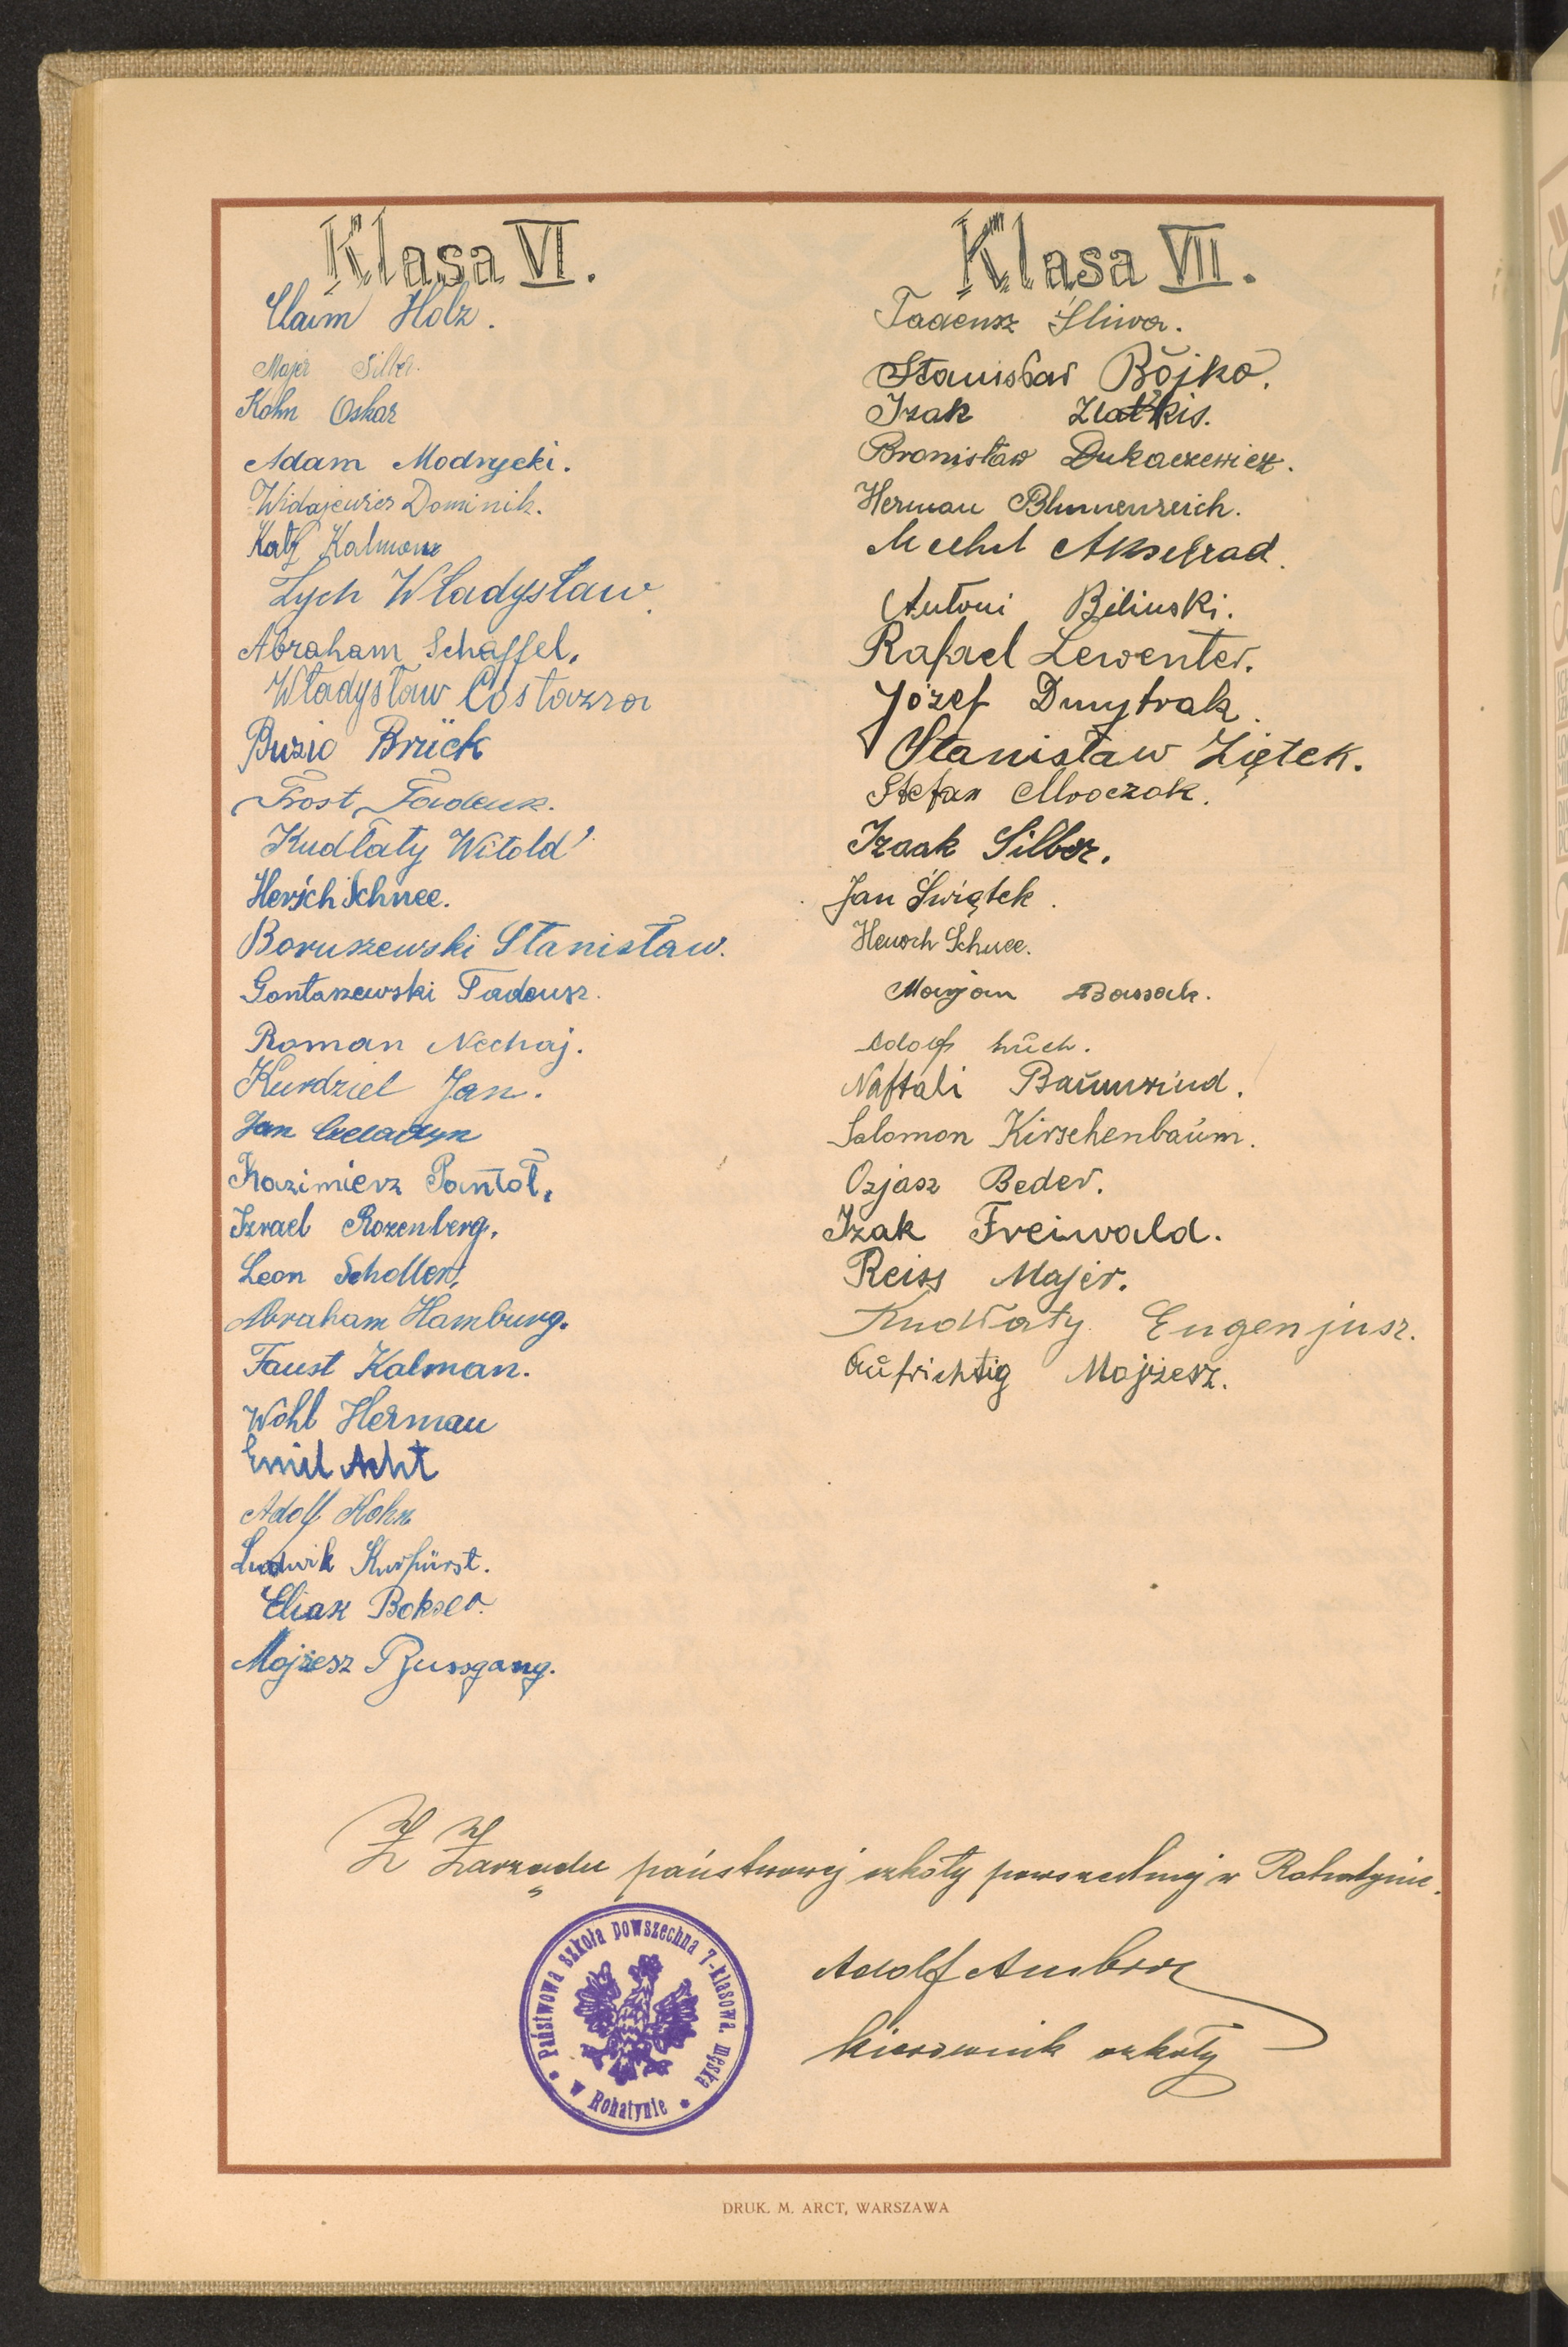 Klasa VI.
Chaim Holz.
Majer Silber.
Kohn Oskar
Adam Modrycki.
Widajewicz Dominik.
Katz Kalman
Zych Władysław
Abraham Schaffel.
Władysław
Buzio Brück
Frost Tadeusz.
Kudłaty Witold
Hersch Schnee.
Boruszewski Stanisław.
Gontaszewski Tadeusz.
Roman Nechaj.
Kurdziel Jan.
Jan
Kazimierz Pantoł.
Izrael Rozenberg.
Leon Scholler.
Abraham Hamburg.
Faust Kalman.
Wohl Herman
Emil Acht
Adolf Kohn
Ludwik Kurfürst.
Eliasz Bokser.
Mojżesz Bussgang.
Klasa VII.
Tadeusz Śliwa.
Stanisław Bojko.
Izak Zlatkis.
Bronisław Dukaczewicz.
Herman Blumenreich.
Mechel Akselrad.
Antoni Biliński.
Rafael Lewenter.
Józef Dmytrak.
Stanisław Ziętek.
Stefan Mroczak.
Izaak Silber.
Jan Świątek.
Henoch Schnee.
Marjan Bassak.
Adolf
Naftali Baumrind.
Salomon Kirschenbaum.
Ozjasz Beder.
Izak Freiwald.
Reiss Majer.
Kudłaty Eugenjusz.
Aufrichtig Mojżesz.
Z Zarządu państwowej szkoły powszechnej w Rohatynie.
Państwowa szkoła powszechna 7-klasowa. męska
w Rohatynie
Adolf
kierownik szkoły
DRUK. M. ARCT, WARSZAWA